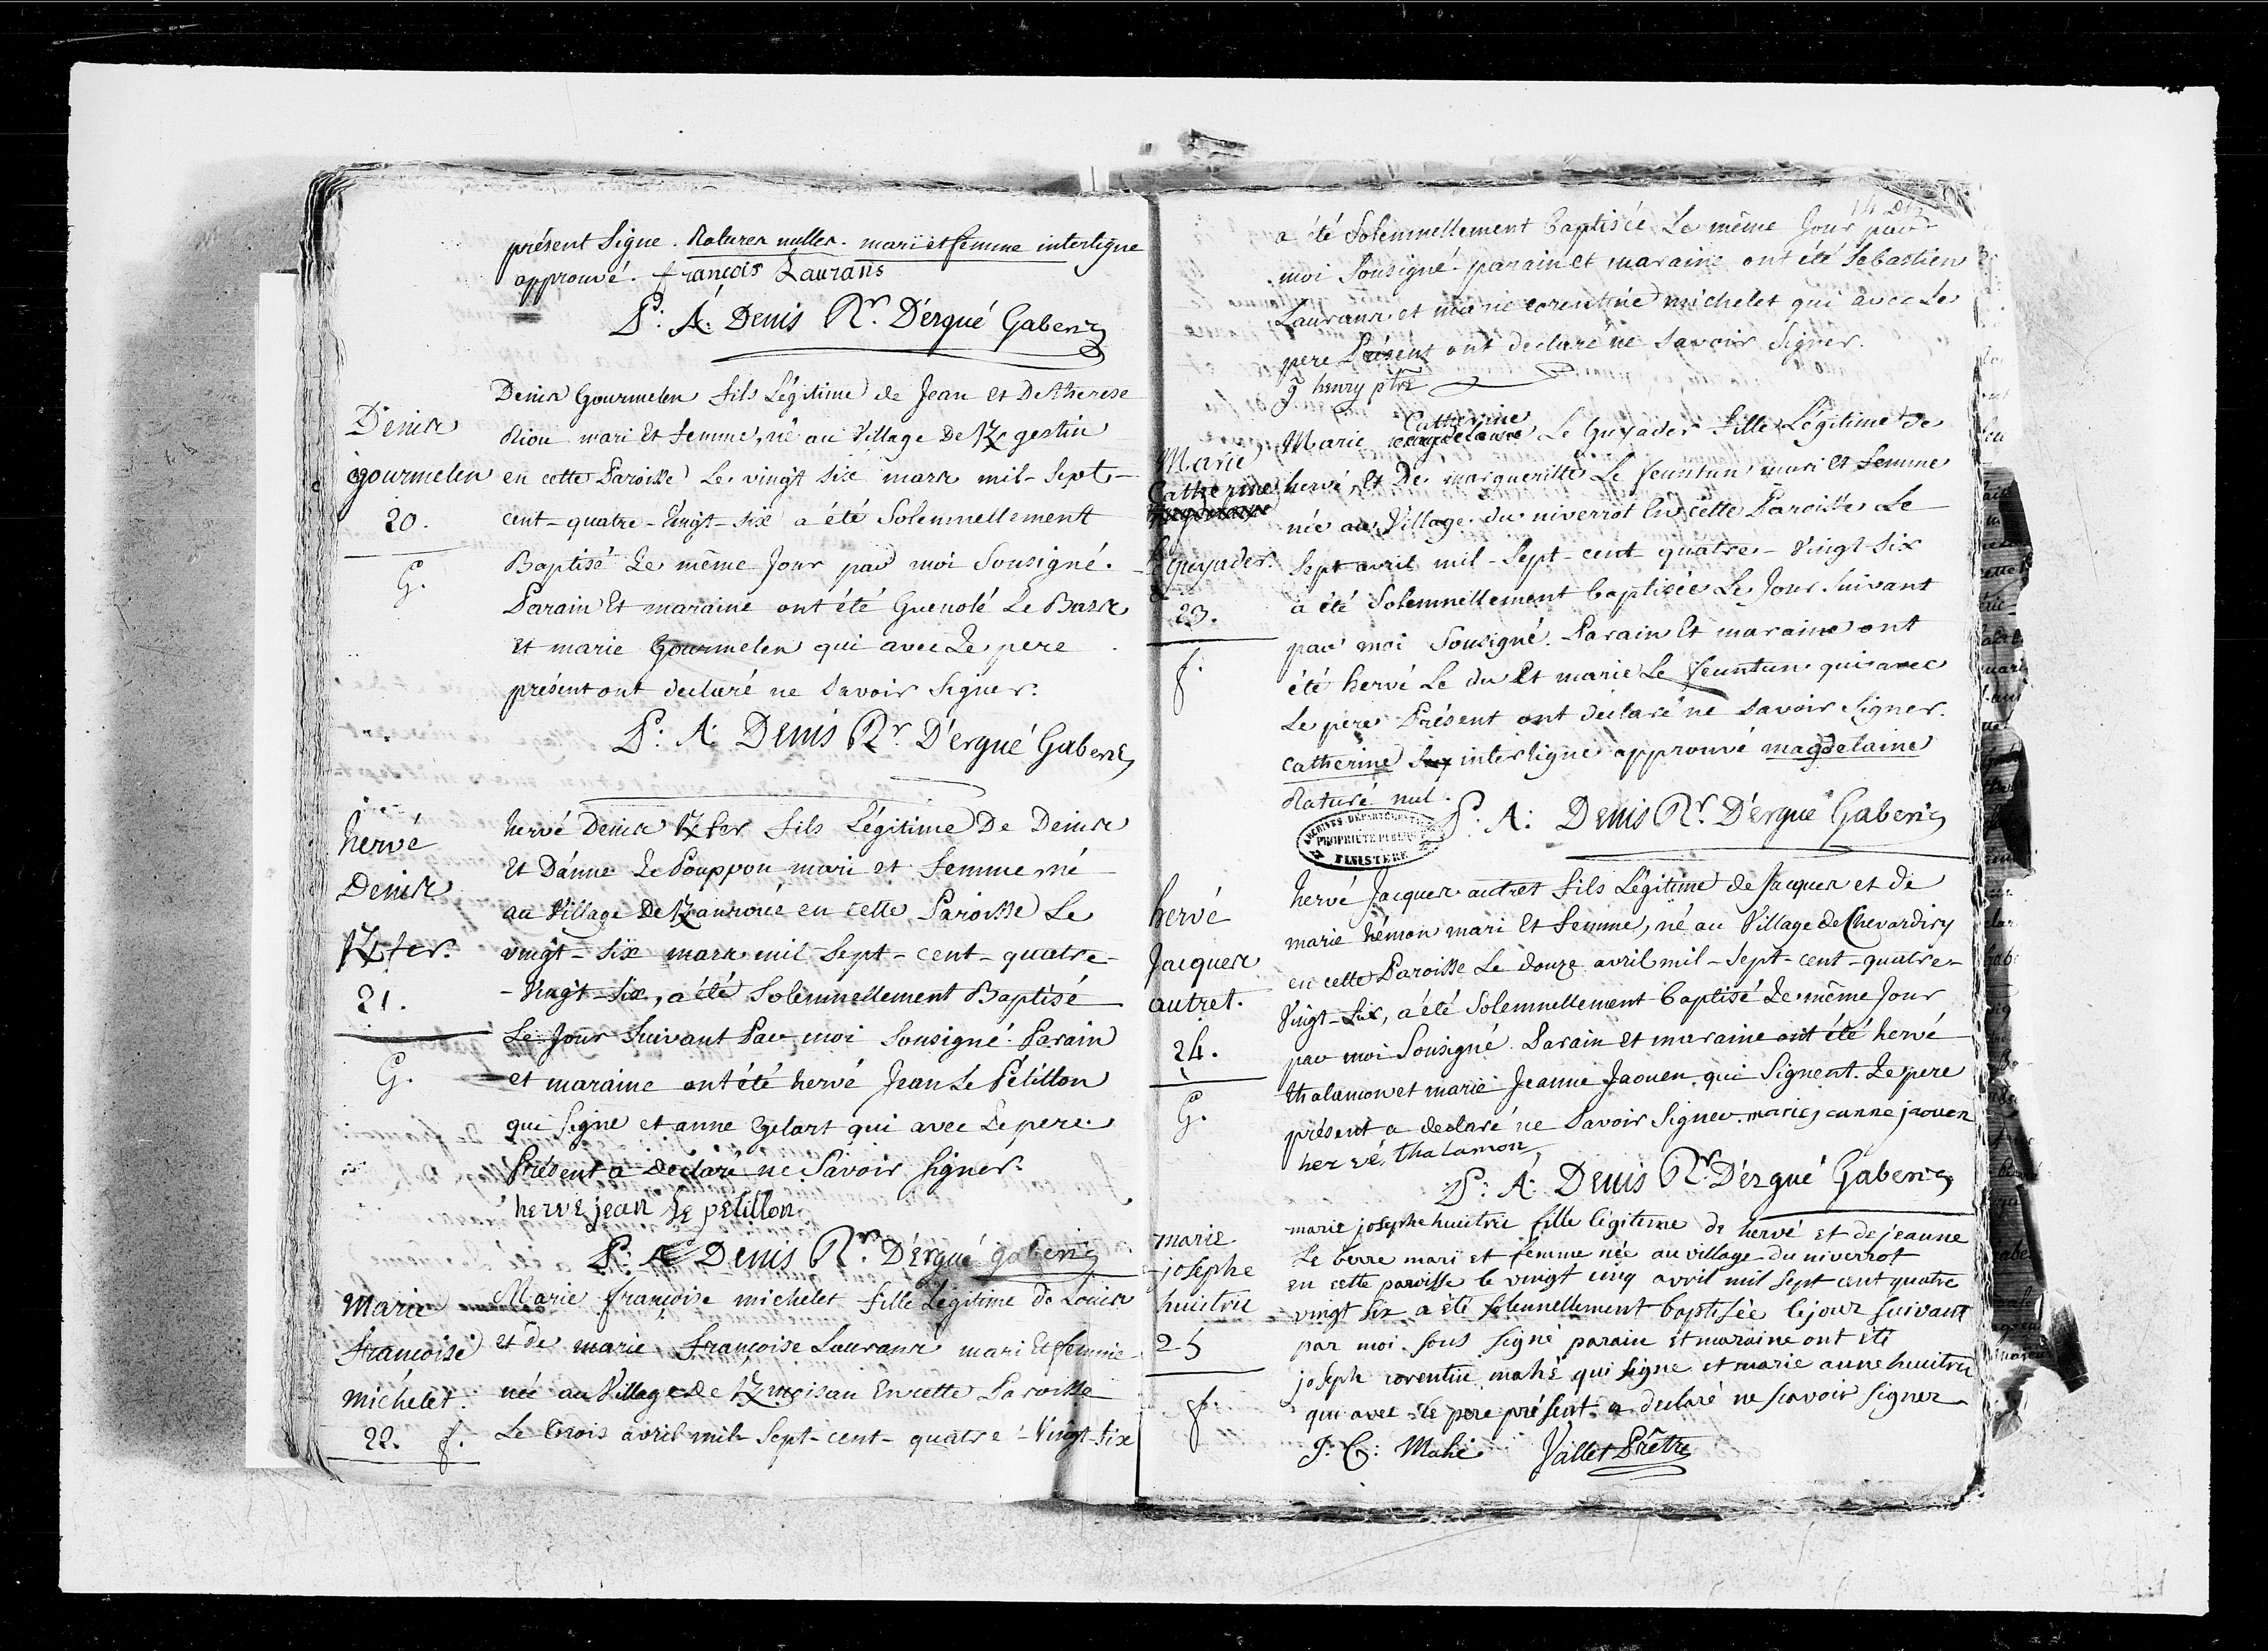 présent Signe. Ratures nulles. mari et femme interligne
approuvé. françois Laurans
P: A: Denis Rr. D'ergué Gaberic
Denis
gourmelen
20.
G.
Denis Gourmelen fils Légitime de Jean et De therese
Riou mari Et femme, né au Village De Kgestin
en cette Paroisse Le vingt six mars mil-Sept-
cent-quatre-Vingt-six a été Solemnellement
Baptisé Le même Jour par moi Sousigné.
Parain Et maraine ont été Guenolé Le Bars
Et marie Gourmelen qui avec Le pere
présent ont declaré ne Savoir Signer.
P: A: Denis Rr. D'ergué Gaberic
hervé
Denis
Kfer.
21.
G.
hervé Denis Kfer fils Légitime De Denis
Et D'anne Le Pouppon mari et femme né
au Village De Kanroué en cette Paroisse Le
vingt-six mars mil-Sept-cent-quatre-
-Vingt-Six, a été Solemnellement Baptisé
Le Jour Suivant Par moi Sousigné. Parain
et maraine ont été hervé Jean Le Pétillon
qui Signe et anne Gelart qui avec Le pere
Présent a déclaré ne Savoir Signer.
herve jean Le petillon
P: A: Denis Rr. D'Ergué gaberic
Marie
françoise
Michelet.
22. f.
Marie françoise michelet fille Légitime de Louis
et de marie françoise Laurans mari Et femme
née au Village de Kmoisan En cette Paroisse
Le trois avril mil-Sept-cent-quatre-Vingt-six
14
a été Solemnellement baptisée Le même Jour par
moi Sousigné. parain et maraine ont été Sebastien
Laurans et marie corentine michelet qui avec Le
pere Présent ont declaré ne Savoir Signer.
g henry ptre
Marie
Catherine
Le Guyader.
23.
f.
Catherine
Marie magdelaine Le Guyader fille Légitime de
hervé Et De margueritte Le feuntun mari Et femme
née au Village du niverrot En cette Paroisse Le
Sept avril mil-Sept-cent-quatre-Vingt-Six
a été Solemnellement baptisée Le Jour Suivant
par moi Sousigné. Parain Et maraine ont
été hervé Le du Et marie Le feuntun qui avec
Le pere Présent ont declaré ne Savoir Signer.
Catherine interligne approuvé magdelaine
Raturé nul.
P: A: Denis Rr. D'ergué Gaberic
ARCHIVES DÉPARTEMENTALES
PROPRIÉTÉ PUBLIQUE
FINISTÈRE
hervé
Jacques
autret.
24.
G.
hervé Jacques autret fils Légitime de Jacques et de
marie hémon mari Et femme, né au Village de Chevardiry
en cette Paroisse Le douze avril mil-Sept-cent-quatre-
Vingt-Six, a été Solemnellement baptisé Le même Jour
par moi Sousigné. Parain et maraine ont été hervé
thalamon et marie Jeanne Jaouen qui Signent. Le pere
présent a declaré ne Savoir Signer. marie jeanne jaouen
hervé thalamon
P: A: Denis Rr. D'ergué Gaberic
marie
josephe
huitric
25
f.
marie josephe huitric fille légitime de hervé et de jeanne
Le berre mari et femme née au village du niverrot
en cette paroisse le vingt cinq avril mil sept cent quatre
vingt six a été solennellement baptisée le jour suivant
par moi sous signé parain et maraine ont été
joseph corentin mahé qui signe et marie anne huitric
qui avec le pere présent a declaré ne scavoir signer
J: C: Mahé Vallet Prêtre